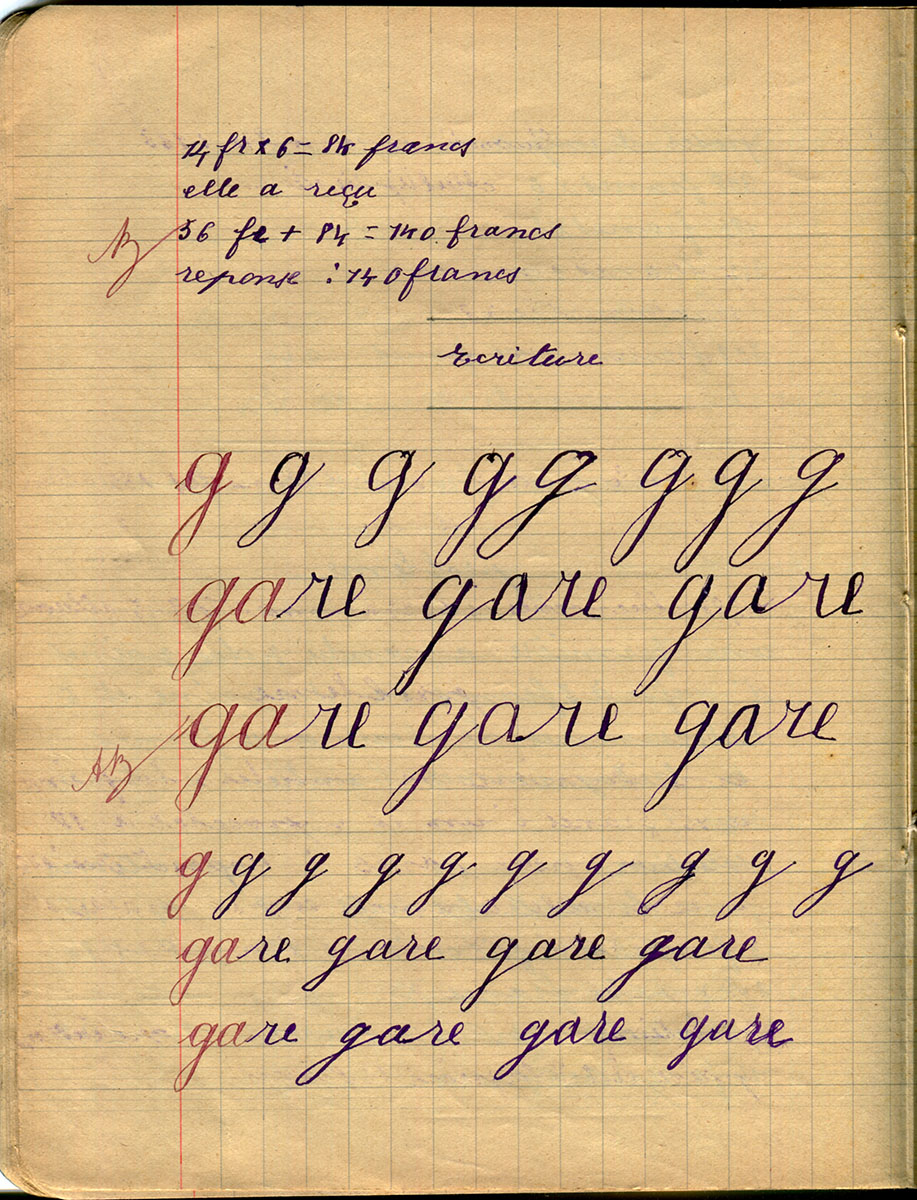 14 fr x 6 = 84 francs
elle a reçu
B 56 fr + 84 = 140 francs
reponse : 140 francs
Ecriture
g g g g g g g g
gare gare gare
gare gare gare
AB
g g g g g g g g g g
gare gare gare gare
gare gare gare gare